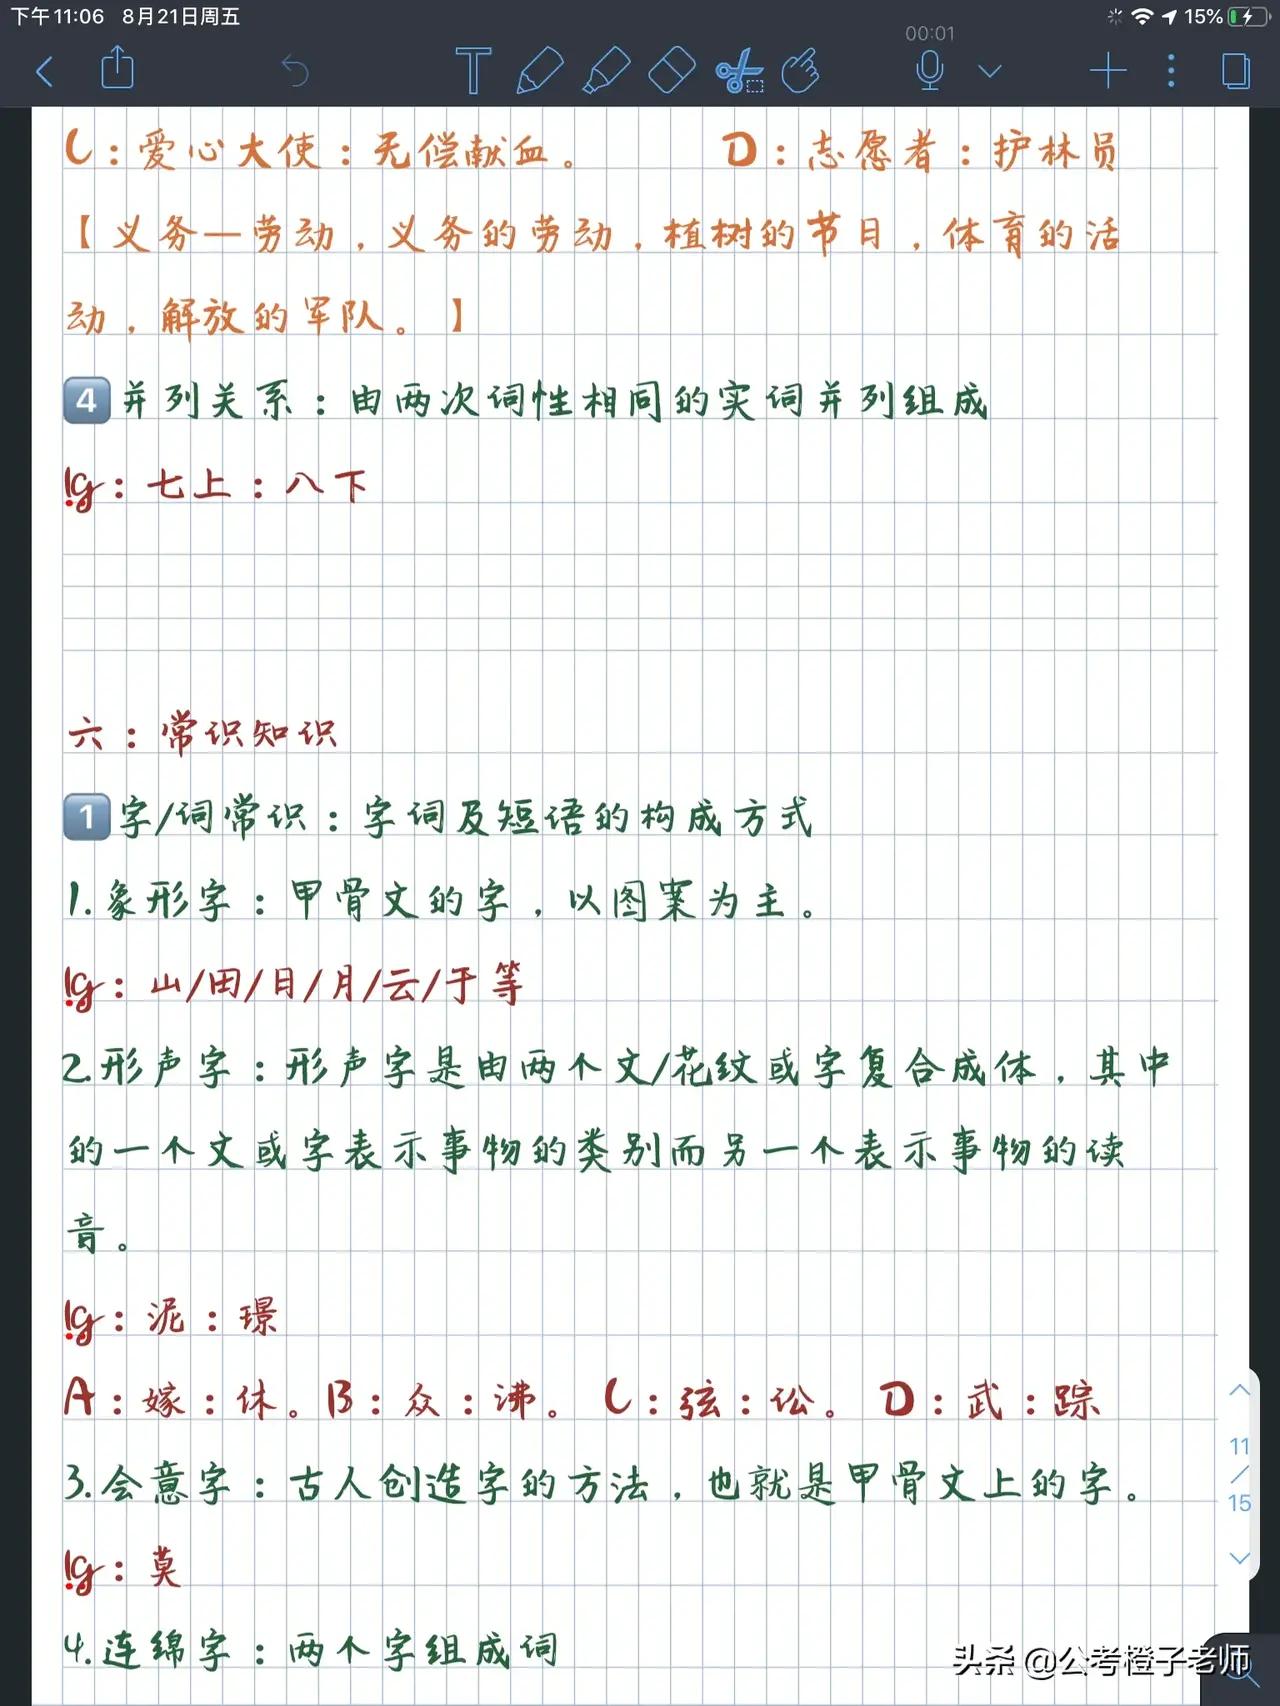 下午11:06 8月21日周五
15%
00:01
T
C：爱心大使：无偿献血。 D：志愿者：护林员
【义务—劳动，义务的劳动，植树的节日，体育的活
动，解放的军队。】
4 并列关系：由两次词性相同的实词并列组成
eg：七上：八下
六：常识知识
1 字/词常识：字词及短语的构成方式
1.象形字：甲骨文的字，以图案为主。
eg：山/田/日/月/云/于等
2.形声字：形声字是由两个文/花纹或字复合成体，其中
的一个文或字表示事物的类别而另一个表示事物的读
音。
eg：泥：璟
A：嫁：休。B：众：沸。 C：弦：讼。 D：武：踪
3.会意字：古人创造字的方法，也就是甲骨文上的字。
eg：莫
4.连绵字：两个字组成词
11
/
15
头条 @公考橙子老师